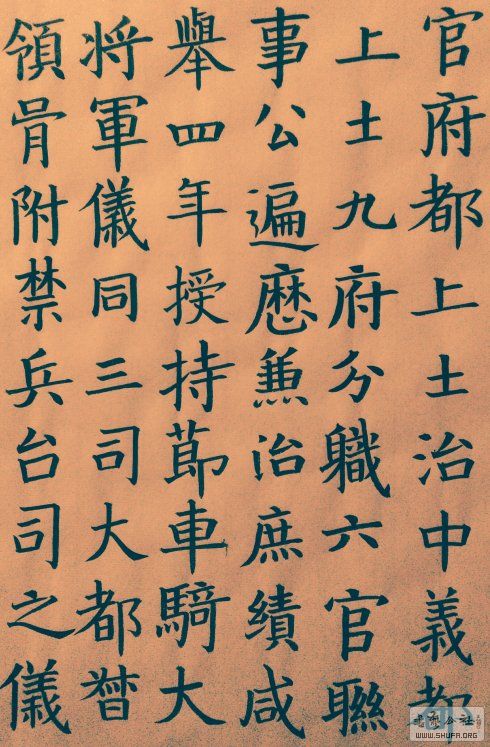 官府都上士治中義都
上士九府分職六官聯
事公遍歷兼治庶績咸
舉四年授持節車騎大
将軍儀同三司大都督
領骨附禁兵台司之儀
公社
WWW.SHUFA.ORG